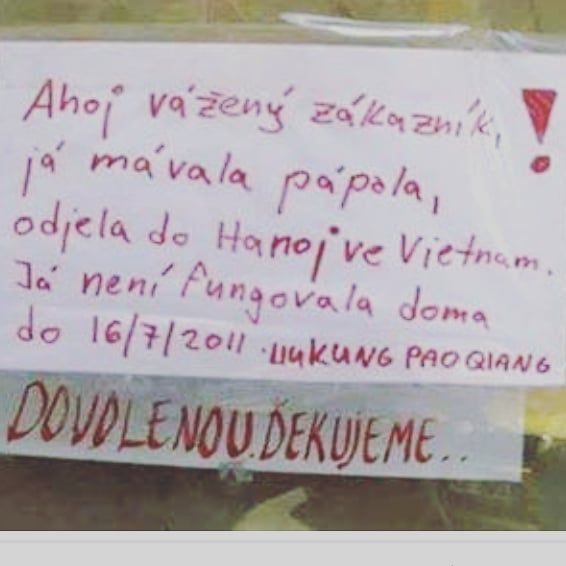 Ahoj vážený zákazník, !
já mávala pápola,
odjela do Hanoj ve Vietnam.
Já není fungovala doma
do 16/7/2011. LIUKUNG PAO QIANG
DOVOLENOU. ĎEKUJEME..